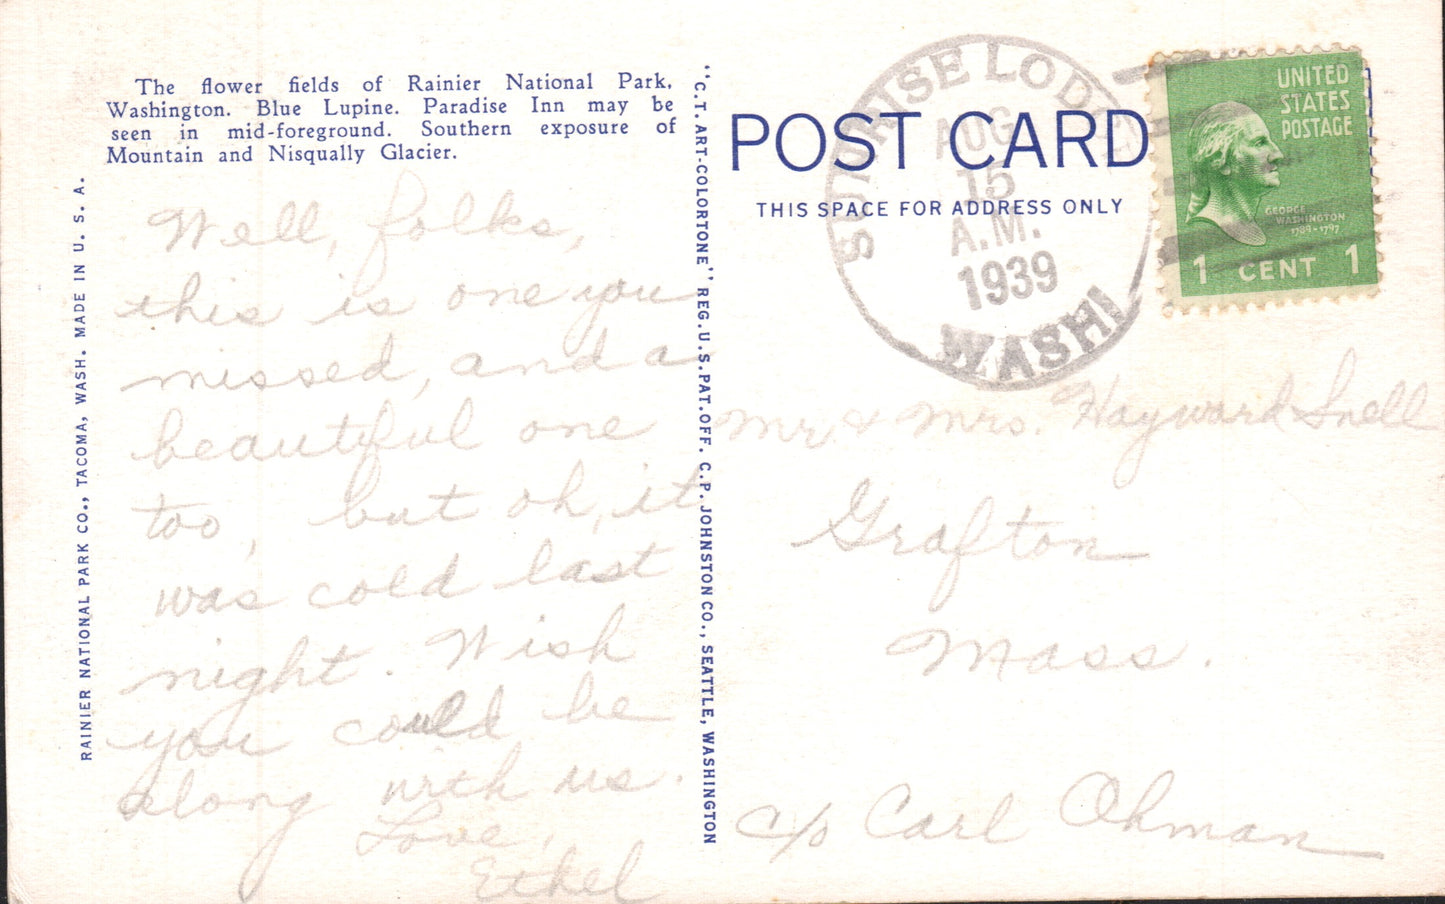 The flower fields of Rainier National Park,
Washington. Blue Lupine. Paradise Inn may be
seen in mid-foreground. Southern exposure of
Mountain and Nisqually Glacier.
RAINIER NATIONAL PARK CO., TACOMA, WASH. MADE IN U. S. A.
Well, folks,
this is one you
missed, and a
beautiful one
too, but oh, it
was cold last
night. Wish
you could be
along with us.
Love,
Ethel
"C.T. ART-COLORTONE" REG. U.S. PAT. OFF. C.P. JOHNSTON CO., SEATTLE, WASHINGTON
POST CARD
THIS SPACE FOR ADDRESS ONLY
SUNRISE LODGE
AUG
15
A.M.
1939
WASHI
UNITED
STATES
POSTAGE
GEORGE
WASHINGTON
1789-1797
1 CENT 1
Mr. & Mrs. Hayward Snell
Grafton
Mass.
c/o Carl Ohman